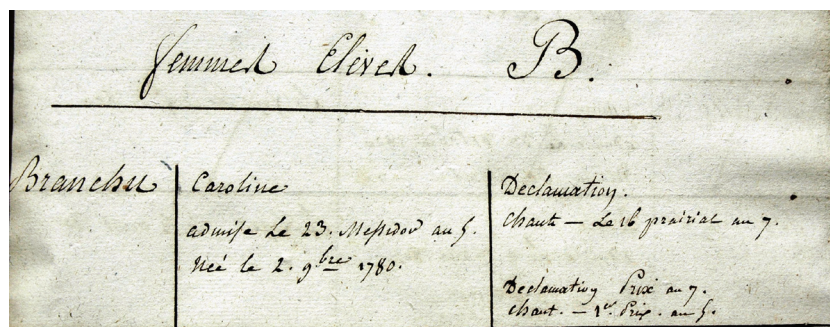 femmes Elèves. B.
Branchu
Caroline
admise Le 23. Messidor an 5.
Née le 2. 9bre 1780.
Declamation.
Chant — Le 16 prairial an 7.
Declamation Prix an 7.
chant. — 1er Prix. an 5.